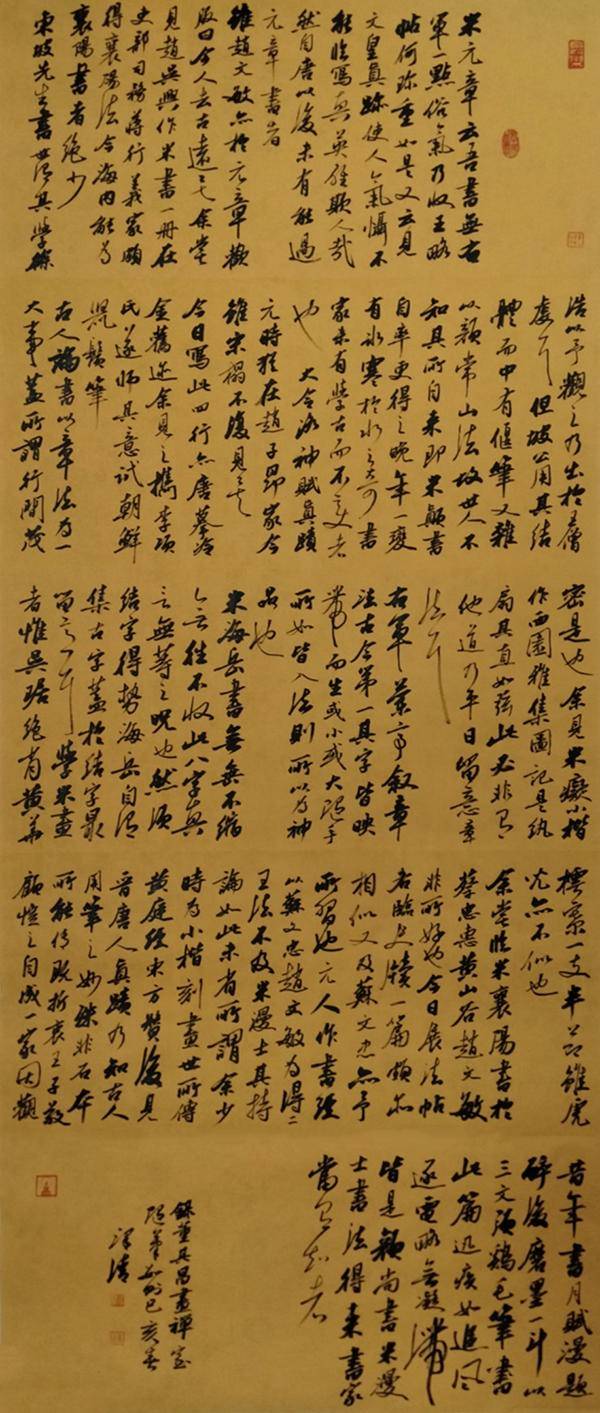 米元章云吾書無右
軍一點俗氣乃收王略
帖何珍重如是又云見
文皇真跡使人氣懾不
能臨寫真英雄欺人哉
然自唐以後未有能過
元章書者
雖趙文敏亦於元章歎
服曰今人去古遠矣余嘗
見趙吳興作米書一冊在
吏部司務蔣行義家頗
得襄陽法今海内能為
襄陽書者絕少
東坡先生書世謂其學徐
浩以予觀之乃出於王僧
虔耳但坡公用其結
體而中有偃筆又雜
以顏常山法故世人不
知其所自來即米顛書
自率更得之晚年一變
有冰寒於水之奇書
家未有學古而不變者
也大令洛神賦真蹟
元時猶在趙子昂家今
雖宋榻不復見矣
今日寫此四行亦唐摹冷
金舊迹余見之攜李項
氏遂師其意試朝鮮
鼠鬚筆
古人論書以章法為一
大事蓋所謂行間茂
密是也余見米癡小楷
作西園雅集圖記是紈
扇其直如弦此必非有
他道乃平日留意章
法耳
右軍蘭亭叙章
法古今第一其字皆映
帶而生或小或大隨手
所如皆入法則所以為神
品也
米海岳書無垂不縮
無往不收此八字真
言無等之咒也然須
結字得勢海岳自謂
集古字蓋於結字最
留意耳學米書
者惟吳琚絕肖黃華
樗寮一支半節雖虎
兒亦不似也
余嘗臨米襄陽書於
蔡忠惠黃山谷趙文敏
非所好也今日展法帖
各臨尺牘一篇頗亦
相似又及蘇文忠亦予
所習也元人作書經
以蘇文忠趙文敏為得二
王法不及米漫士其持
論如此未省所謂余少
時為小楷刻畫世所傳
黃庭經東方贊後見
晉唐人真蹟乃知古人
用筆之妙殊非石本
所能傳既折衷王子敬
顧愷之自成一家因觀
昔年書月賦漫題
研後磨墨一斗以
三文須鷄毛筆書
此篇迅疾如追風
逐電略無凝滯
皆是顏尚書米漫
士書法得來書家
當有知者
錄董其昌畫禪室
隨筆 己亥春